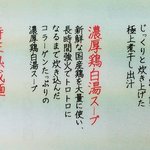 じっくりと炊き上げた
極上煮干し出汁
濃厚鶏白湯スープ
新鮮な国産鶏を大量に使い、
長時間強火でトロトロに
なるまで炊き込んだ
コラーゲンたっぷりの
濃厚鶏白湯スープ